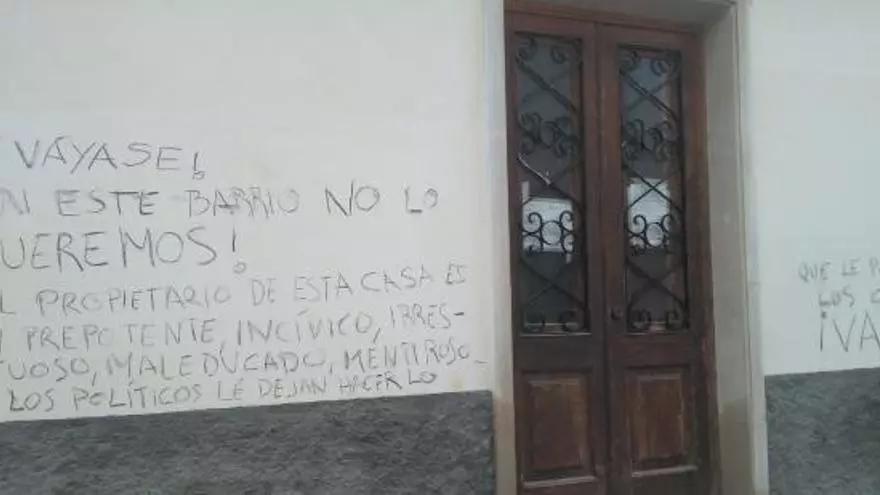 ¡VÁYASE!
EN ESTE BARRIO NO LO
QUEREMOS!
EL PROPIETARIO DE ESTA CASA ES
PREPOTENTE, INCÍVICO, IRRES-
TUOSO, MALEDUCADO, MENTIROSO
LOS POLÍTICOS LE DEJAN HACER LO
QUE LE P
LOS
¡VA